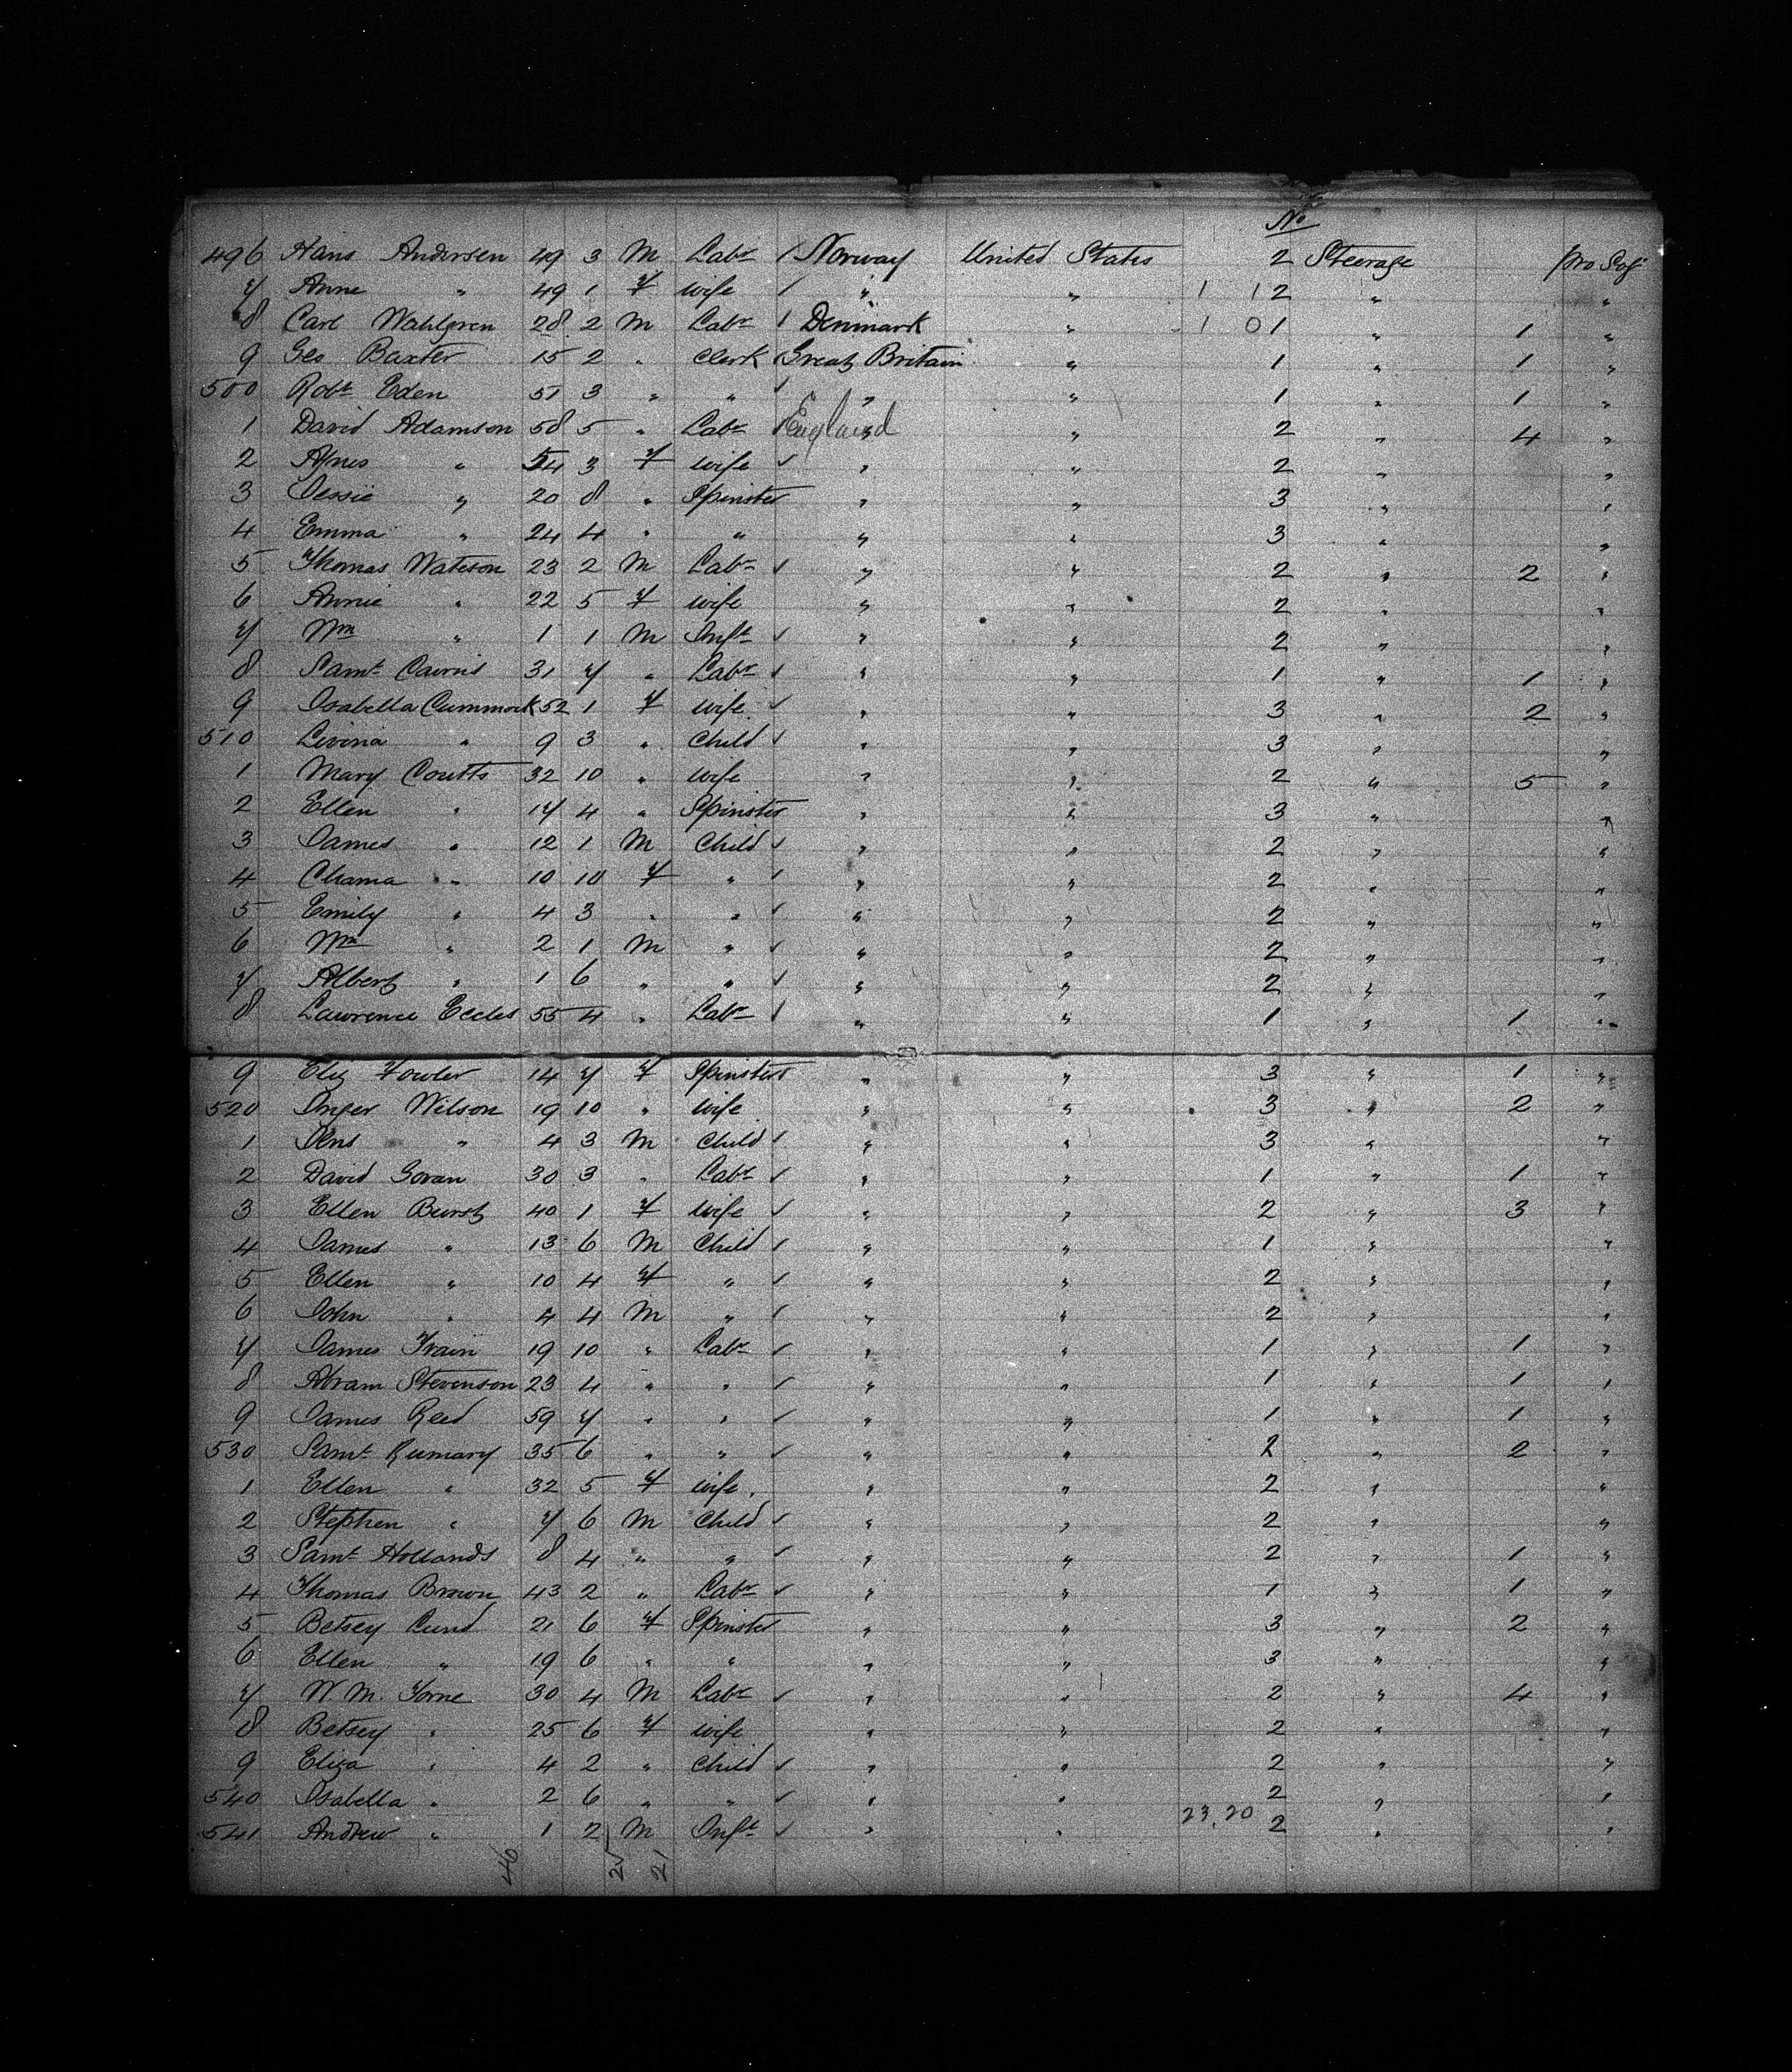 No
496 Hans Andersen 49 3 M Labr / Norway United States 2 Steerage pro Soj
7 Anne " 49 1 F wife / " " 1 1 2 " "
8 Carl Wahlgren 28 2 M Labr / Denmark " 1 0 1 " 1 "
9 Geo Baxter 15 2 " Clerk / Great Britain " 1 " 1 "
500 Robt Eden 51 3 " " / " " 1 " 1 "
1 David Adamson 58 5 " Labr / England " " 2 " 4 "
2 Agnes " 54 3 F wife ✓ " " 2 " "
3 Jessie " 20 8 " Spinster " " 3 " "
4 Emma " 24 4 " " " " 3 " "
5 Thomas Watson 23 2 M Labr ✓ " " 2 " 2 "
6 Annie " 22 5 F wife " " 2 " "
7 Wm " 1 1 M Inft ✓ " " 2 " "
8 Saml Cairns 31 7 " Labr ✓ " " 1 " 1 "
9 Isabella Cummock 52 1 F wife ✓ " " 3 " 2 "
510 Livina " 9 3 " Child ✓ " " 3 " "
1 Mary Coutts 32 10 " wife " " 2 " 5 "
2 Ellen " 17 4 " Spinster " " 3 " "
3 James " 12 1 M Child ✓ " " 2 " "
4 " 10 10 F " ✓ " " 2 " "
5 Emily " 4 3 " " ✓ " " 2 " "
6 Wm " 2 1 M " ✓ " " 2 " "
7 Albert " 1 6 " " ✓ " " 2 " "
8 Lawrence Eccles 55 4 " Labr ✓ " " 1 " 1 "
9 Eliz Fowler 14 7 F Spinster " " 3 " 1 "
520 Inger Wilson 19 10 " wife " " 3 " 2 "
1 Jens " 4 3 M Child ✓ " " 3 " "
2 David Govan 30 3 " Labr ✓ " " 1 " 1 "
3 Ellen Burst 40 1 F wife ✓ " " 2 " 3 "
4 James " 13 6 M Child ✓ " " 1 " "
5 Ellen " 10 4 F " ✓ " " 2 " "
6 John " 4 4 M " ✓ " " 2 " "
7 James Train 19 10 " Labr ✓ " " 1 " 1 "
8 Abram Stevenson 23 4 " " ✓ " " 1 " 1 "
9 James Reed 59 7 " " ✓ " " 1 " 1 "
530 Saml Rumary 35 6 " " ✓ " " 2 " 2 "
1 Ellen " 32 5 F wife " " 2 " "
2 Stephen " 7 6 M Child ✓ " " 2 " "
3 Saml Hollands 8 4 " " ✓ " " 2 " 1 "
4 Thomas Brown 43 2 " Labr ✓ " " 1 " 1 "
5 Betsey Cund 21 6 F Spinster " " 3 " 2 "
6 Ellen " 19 6 " " " " 3 " "
7 Wm. Torne 30 4 M Labr ✓ " " 2 " 4 "
8 Betsey " 25 6 F wife " " 2 " "
9 Eliza " 4 2 " Child ✓ " " 2 " "
540 Isabella " 2 6 " " ✓ " " 2 " "
541 Andrew " 1 2 M Inft ✓ " " 23.20 2 " "
46 25 21